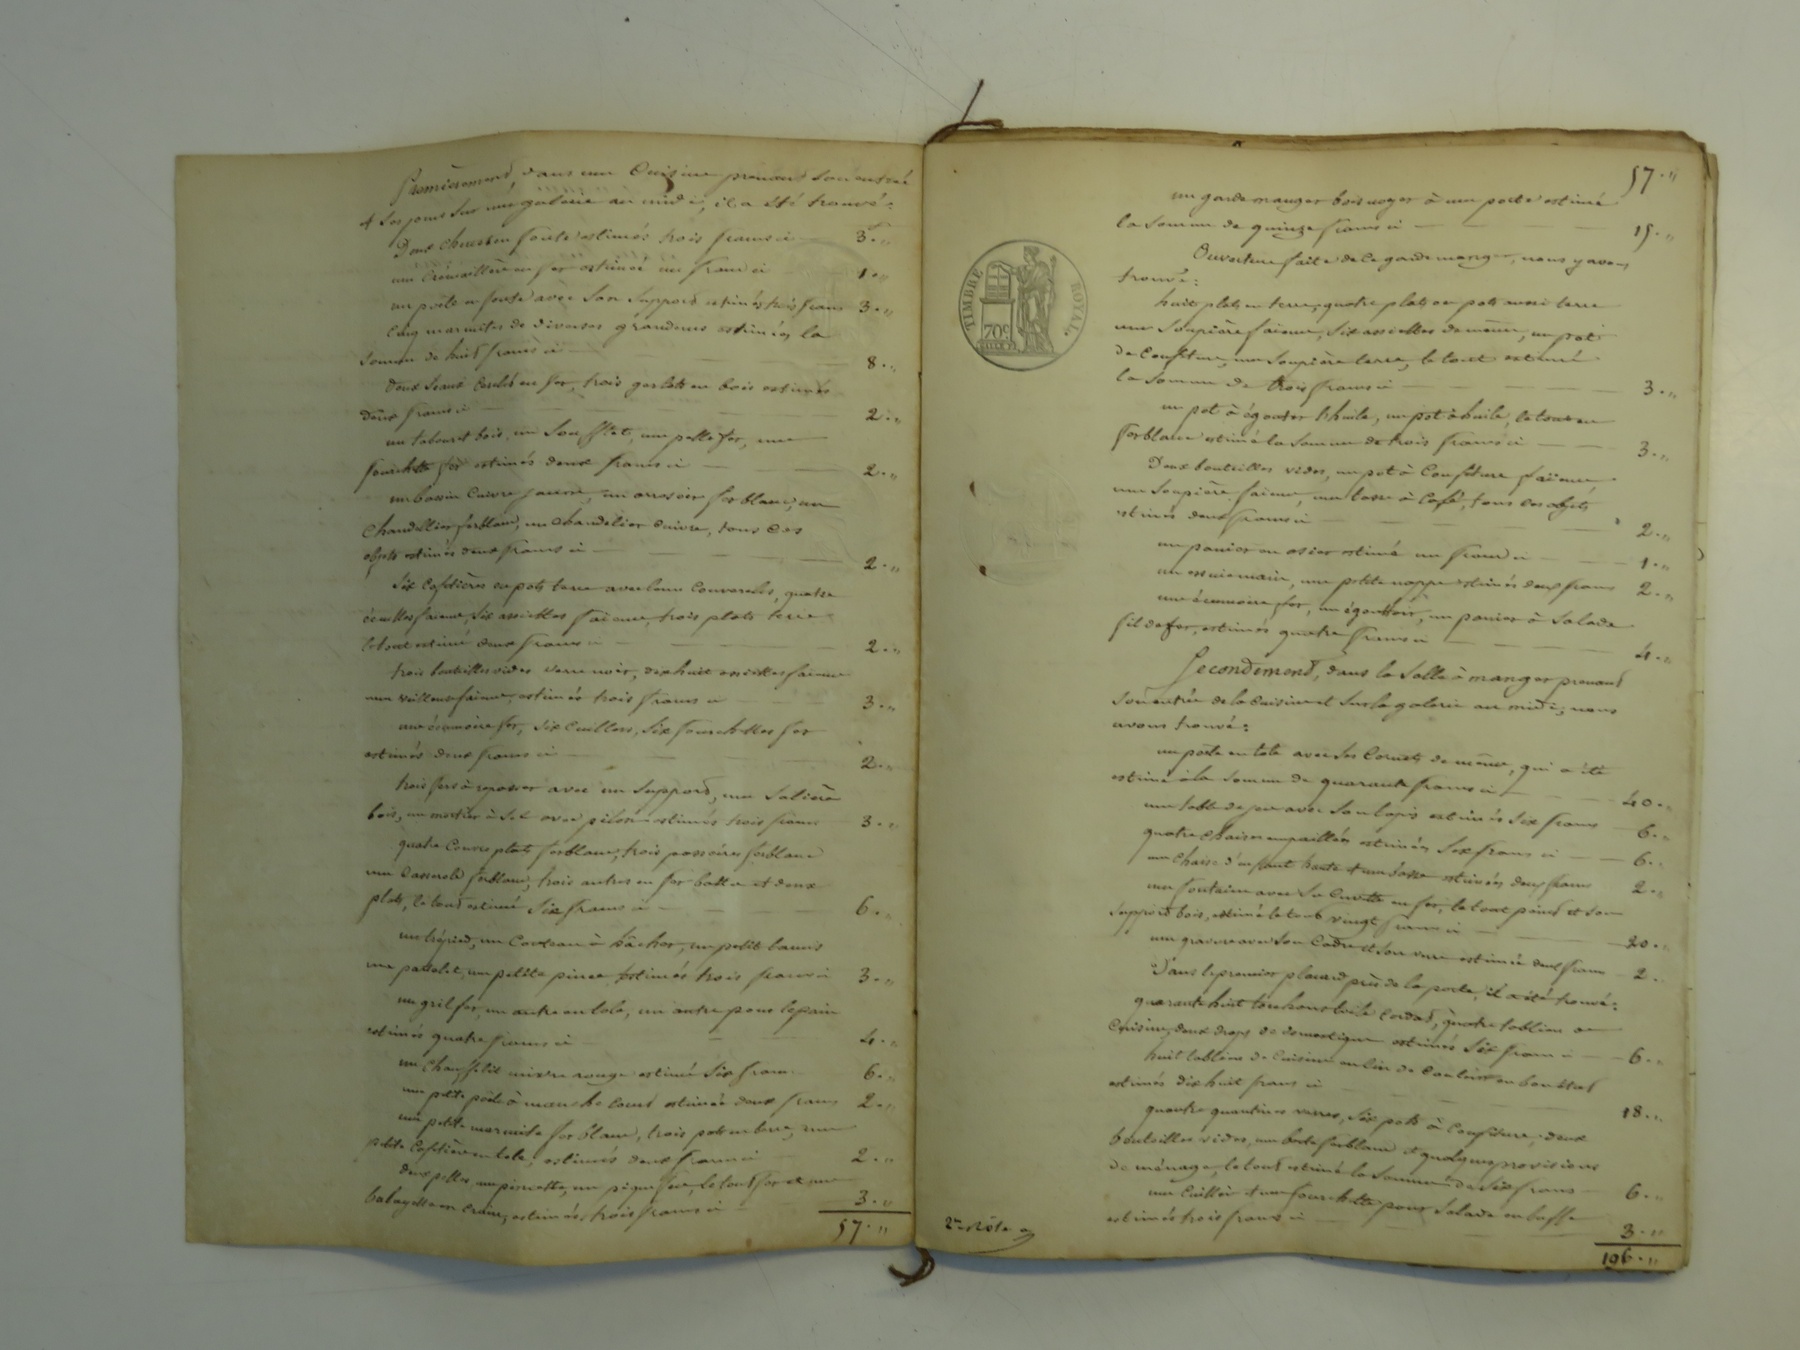 Premièrement, dans une Cuisine prenant son entrée
& ses jours sur une galerie au midi, il a été trouvé:
Deux chenets en fonte estimés trois francs ci 3 . "
une Crémaillère en fer estimée un franc ci 1 . "
un poële en fonte avec son support estimés trois francs 3 . "
Cinq marmites de diverses grandeurs estimées la
somme de huit francs ci 8 . "
Deux seaux cerclés en fer, trois gerlots en bois estimés
deux francs ci 2 . "
un tabouret bois, un soufflet, une pelle fer, une
fourchette fer estimés deux francs ci 2 . "
un bassin cuivre jaune, un arrosoir ferblanc, un
chandellier ferblanc, un chandelier cuivre, tous ces
objets estimés deux francs ci 2 . "
Six cafetières ou pots terre avec leurs couvercles, quatre
écuelles faïence, six assiettes faïence, trois plats terre
le tout estimé deux francs ci 2 . "
trois bouteilles vides verre noir, dix huit assiettes faïence
une veilleuse faïence, estimés trois francs ci 3 . "
une écumoire fer, six cuillers, six fourchettes fer
estimés deux francs ci 2 . "
trois fers à repasser avec un support, une salière
bois, un mortier à sel avec pilon estimés trois francs 3 . "
quatre couvre plats ferblanc, trois passoires ferblanc
une casserole ferblanc, trois autres en fer battu et deux
plats, le tout estimé six francs ci 6 . "
un trépied, un couteau à hâcher, un petit
une petite pince estimés trois francs ci 3 . "
un gril fer, un autre en tole, un autre pour le pain
estimés quatre francs ci 4 . "
un chauffe lit cuivre rouge estimé six francs 6 . "
une petite poële à manche court estimée deux francs 2 . "
une petite marmite ferblanc, trois pots en terre, une
petite cafetière en tole, estimés deux francs ci 2 . "
deux pelles, une pincette, un pique feu, le tout fer et une
en crain, estimés trois francs ci 3 . "
57 . "
57 . "
un garde manger bois noyer à une porte estimé
la somme de quinze francs ci 15 . "
Ouverture faite de le garde manger, nous y avons
trouvé:
huit plats en terre, quatre plats ou pots aussi terre
une soupière faïence, six assiettes de même, un pot
de confiture, une soupière terre, le tout estimé
la somme de trois francs ci 3 . "
un pot à égouter l'huile, un pot à huile, le tout en
ferblanc estimé la somme de trois francs ci 3 . "
Deux bouteilles vides, un pot à confiture faïence
une soupière faïence, une tasse à café, tous ces objets
estimés deux francs ci 2 . "
un panier en osier estimé un franc ci 1 . "
un essuie main, une petite nappe estimés deux francs 2 . "
une écumoire fer, un égouttoir, un panier à salade
fil de fer, estimés quatre francs ci 4 . "
Secondement, dans la Salle à manger prenant
son entrée de la Cuisine et sur la galerie au midi, nous
avons trouvé:
un poële en tole avec ses cornets de même, qui a été
estimé à la somme de quarante francs ci 40 . "
une table de jeu avec son tapis estimés six francs 6 . "
quatre chaises empaillées estimées six francs ci 6 . "
une chaise d'enfant haute & une basse estimées deux francs 2 . "
une fontaine avec sa cuvette en fer, le tout peint et son
support bois, estimé le tout vingt francs ci 20 . "
une gravure avec son cadre et son verre estimée deux francs 2 . "
Dans le premier placard près de la porte, il a été trouvé:
quarante huit torchons toile cordat, quatre tabliers de
cuisine, deux draps de domestique estimés six francs ci 6 . "
huit tabliers de cuisine en lin de couleur en bon état
estimés dix huit francs ci 18 . "
quatre verres, six pots à confiture, deux
bouteilles vides, une boite ferblanc & quelques provisions
de ménage, le tout estimé la somme de six francs 6 . "
une cuiller & une fourchette pour salade en buffle
estimés trois francs ci 3 . "
196 . "
2me Rôle
TIMBRE ROYAL.
70 c